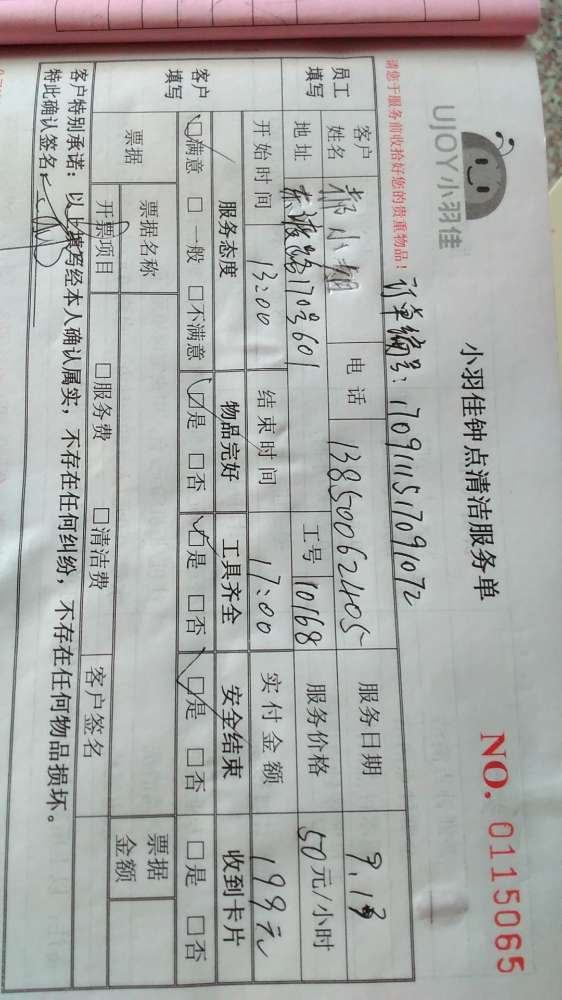 UJOY小羽佳
小羽佳钟点清洁服务单
NO. 0115065
请您于服务前收拾好您的贵重物品!
订单编号:1709111517091072
员工填写
客户姓名 郝小姐 电话 13850062405 服务日期 9.13
地址 170号601 工号 10168 服务价格 50元/小时
开始时间 13:00 结束时间 17:00 实付金额 199元
客户填写
服务态度 物品完好 工具齐全 安全结束 收到卡片
□满意 □一般 □不满意 □是 □否 □是 □否 □是 □否 □是 □否
票据 票据名称 票据金额
开票项目 □服务费 □清洁费 客户签名
客户特别承诺:以上填写经本人确认属实,不存在任何纠纷,不存在任何物品损坏。
特此确认签名: